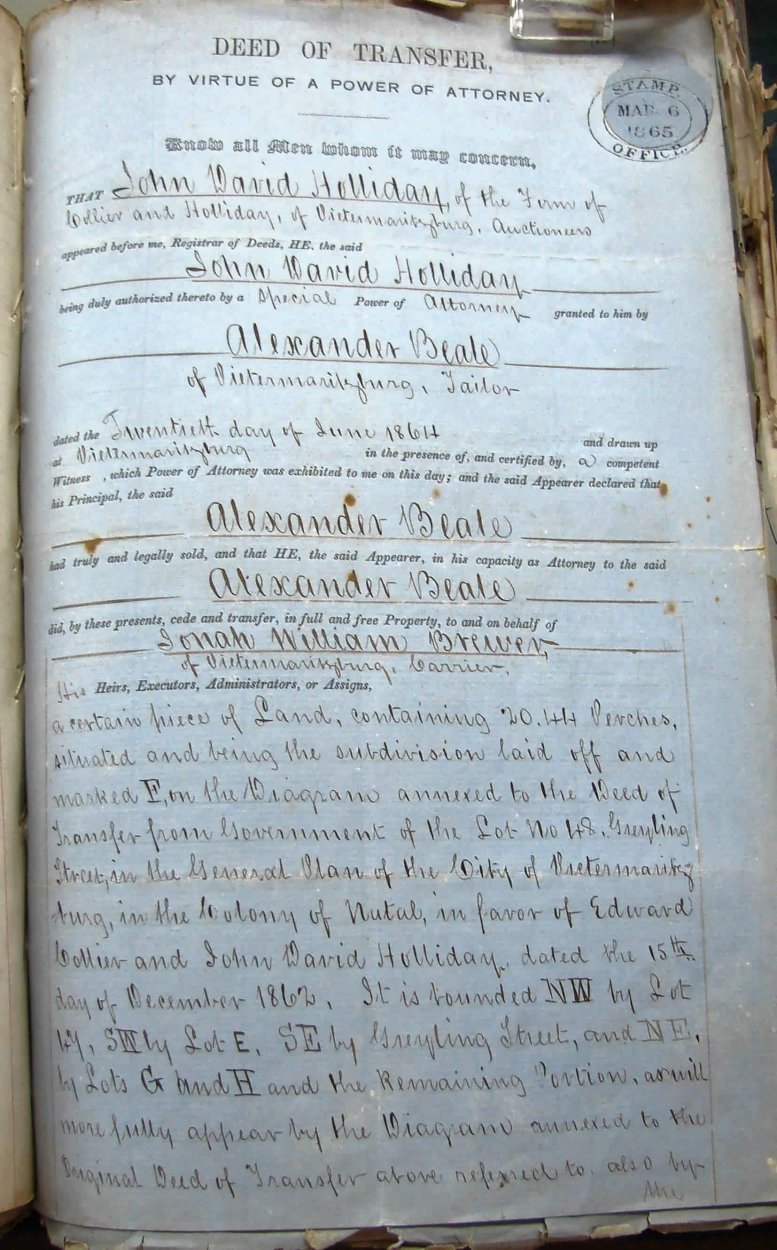 DEED OF TRANSFER,
BY VIRTUE OF A POWER OF ATTORNEY.
STAMP
MAR 6
1865
OFFICE.
Know all Men whom it may concern,
THAT John David Holliday, of the Firm of
Collier and Holliday, of Pietermaritzburg, Auctioneers
appeared before me, Registrar of Deeds, HE, the said
John David Holliday
being duly authorized thereto by a Special Power of Attorney granted to him by
Alexander Beale
of Pietermaritzburg, Tailor
dated the Twentieth day of June 1864 and drawn up
at Pietermaritzburg in the presence of, and certified by, a competent
Witness, which Power of Attorney was exhibited to me on this day; and the said Appearer declared that
his Principal, the said
Alexander Beale
had truly and legally sold, and that HE, the said Appearer, in his capacity as Attorney to the said
Alexander Beale
did, by these presents, cede and transfer, in full and free Property, to and on behalf of
Jonah William Brewer,
of Pietermaritzburg, Carrier,
His Heirs, Executors, Administrators, or Assigns,
a certain piece of Land, containing 20.44 Perches,
situated and being the subdivision laid off and
marked F, on the Diagram annexed to the Deed of
Transfer from Government of the Lot No 48, Greyling
Street, in the General Plan of the City of Pietermaritz
burg, in the Colony of Natal, in favor of Edward
Collier and John David Holliday, dated the 15th
day of December 1862. It is bounded NW by Lot
47, SW by Lot E, SE by Greyling Street, and NE,
by Lots G and H and the Remaining Portion, as will
more fully appear by the Diagram annexed to the
Original Deed of Transfer above referred to. also by
the